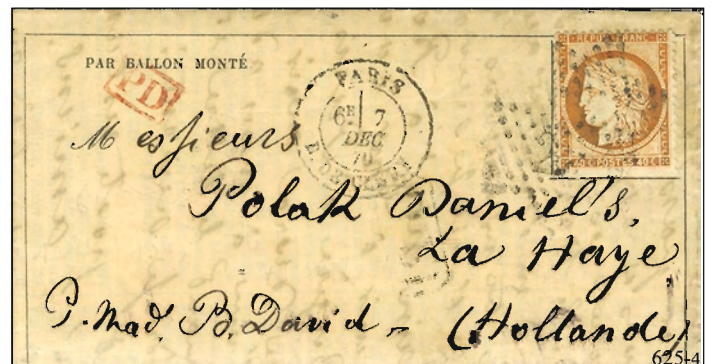 PAR BALLON MONTÉ
PD
PARIS
6E 7
DEC
70
REPUB. FRANC.
40C POSTES 40C
Messieurs
Polak Daniel's,
La Haye
P. Mad. B. David - (Hollande)
625-4